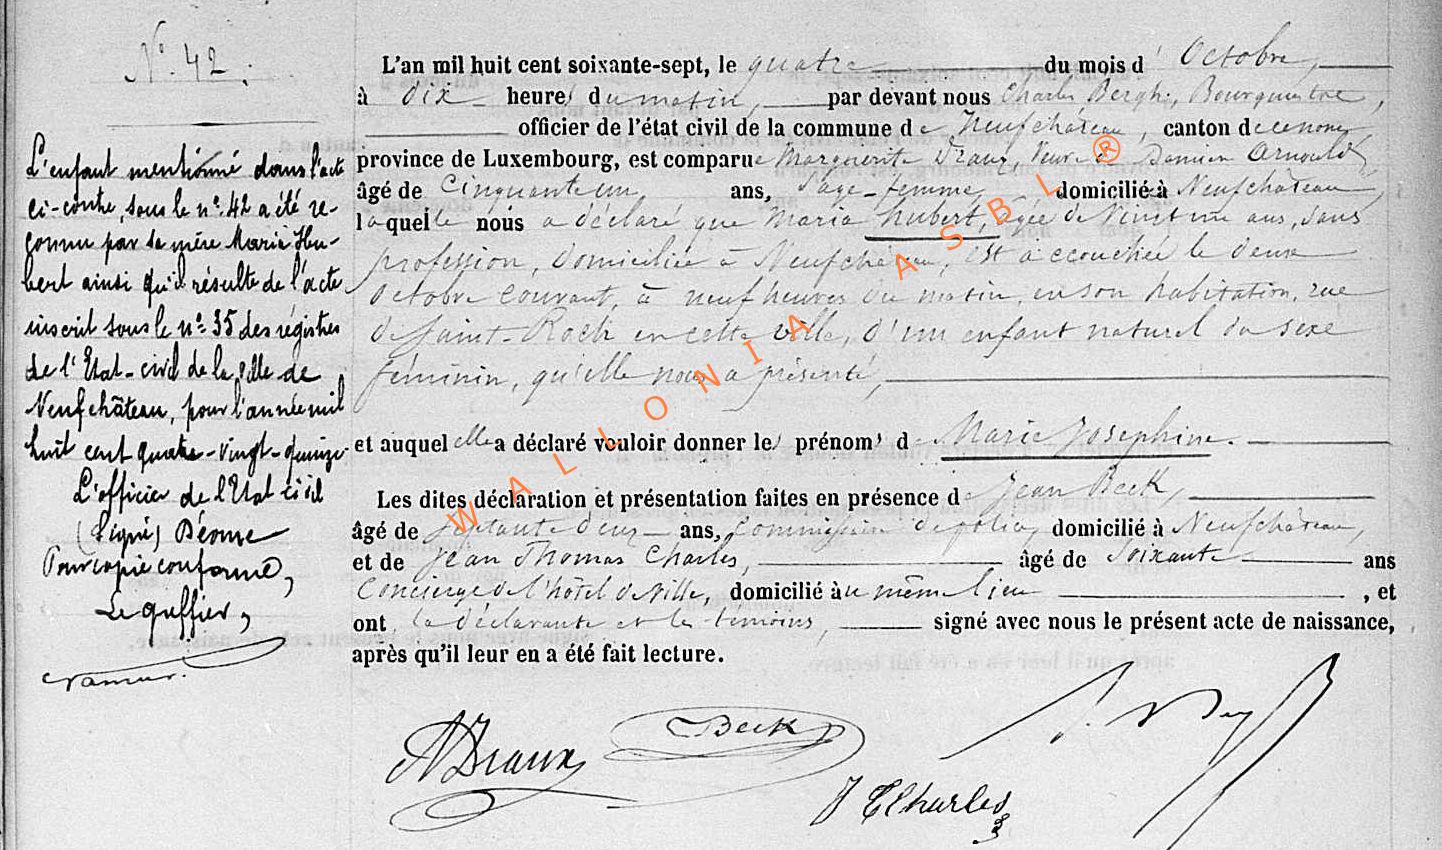 N° 42.
L'enfant mentionné dans l'acte
ci-contre, sous le n° 42 a été re-
connu par sa mère Marie Hu-
bert ainsi qu'il résulte de l'acte
inscrit sous le n° 35 des registres
de l'Etat-civil de la ville de
Neufchâteau, pour l'année mil
huit cent quatre-vingt-quinze.
L'officier de l'Etat civil
(Signé) Déome
Pour copie conforme,
Le greffier,
L'an mil huit cent soixante-sept, le quatre du mois d' Octobre,
à dix heures du matin, par devant nous Charles Bergh, Bourgmestre,
officier de l'état civil de la commune de Neufchâteau, canton de ce nom,
province de Luxembourg, est comparue Marguerite Draux, Veuve de Damien Arnould,
âgé de Cinquante un ans, Sage-femme, domiciliée à Neufchâteau,
laquelle nous a déclaré que Maria Hubert, âgée de Vingt un ans, sans
profession, domiciliée à Neufchâteau, est accouchée le deux
Octobre courant, à neuf heures du matin, en son habitation, rue
de Saint-Roch en cette ville, d'un enfant naturel du sexe
féminin, qu'elle nous a présenté,
et auquel elle a déclaré vouloir donner les prénoms de Marie Josephine.
Les dites déclaration et présentation faites en présence de Jean Beck,
âgé de septante deux ans, Commissaire de police, domicilié à Neufchâteau,
et de Jean Thomas Charles, âgé de Soixante ans
Concierge de l'hôtel de Ville, domicilié au même lieu , et
ont la déclarante et les témoins, signé avec nous le présent acte de naissance,
après qu'il leur en a été fait lecture.
Draux
Beck
J T Charles
WALLONIA ASBL ®